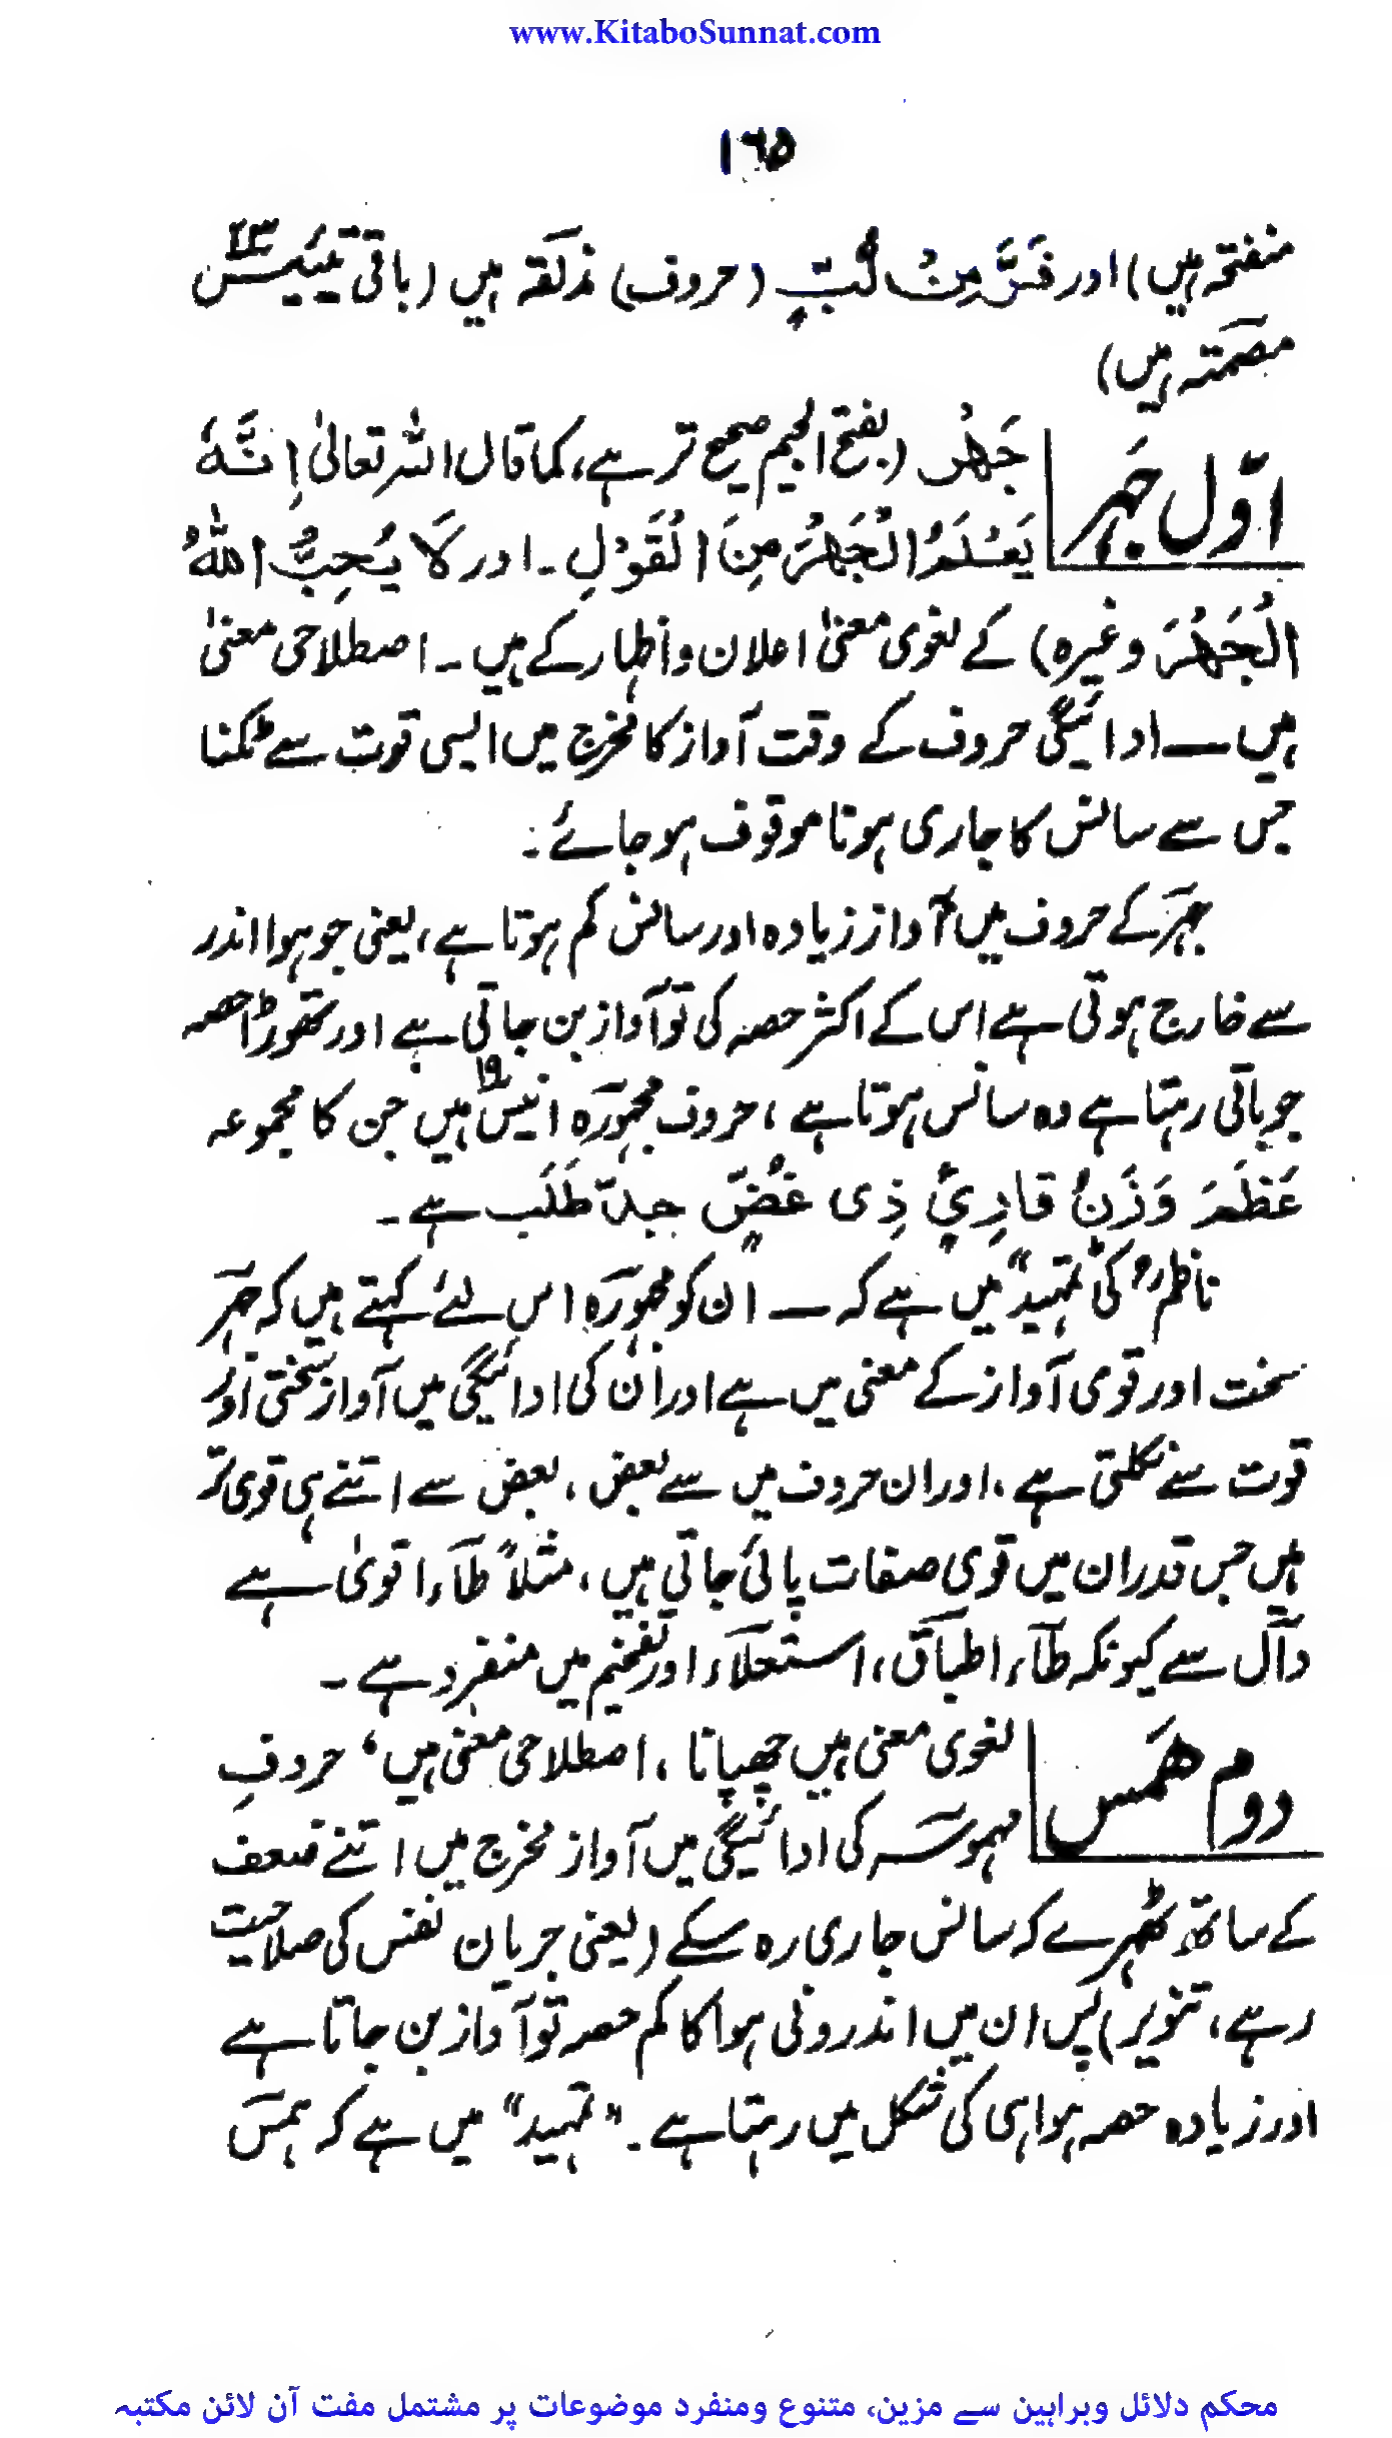 www.KitaboSunnat.com
١٦٥
منفتحہ ہیں) اور فَرَّ مِنْ لُّبٍّ (حروف) مذلقہ ہیں (باقی تیئیس ٢٣
مصمتہ ہیں)
اوّل جہر
جَهْر (بفتح الجیم صحیح تر ہے، کما قال اللہ تعالیٰ اِنَّہٗ
یَعْلَمُ الْجَهْرَ مِنَ الْقَوْلِ ۔ اور لَا یُحِبُّ اللّٰہُ
الْجَهْرَ وغیرہ) کے لغوی معنیٰ اعلان و اظہار کے ہیں ۔ اصطلاحی معنیٰ
ہیں — ادائیگی حروف کے وقت آواز کا مخرج میں ایسی قوت سے ٹکنا
جس سے سانس کا جاری ہونا موقوف ہو جائے ۔
جہر کے حروف میں آواز زیادہ اور سانس کم ہوتا ہے، یعنی جو ہوا اندر
سے خارج ہوتی ہے اس کے اکثر حصہ کی تو آواز بن جاتی ہے اور تھوڑا حصہ
جو باقی رہتا ہے وہ سانس ہوتا ہے، حروف مجہورہ انیس ١٩ ہیں جن کا مجموعہ
عَظُمَ وَزْنُ قَارِیءٍ ذِی غَضٍّ جدّ طَلَب ہے ۔
ناظمؒ کی "تمہید" میں ہے کہ — ان کو مجہورہ اس لئے کہتے ہیں کہ جہر
سخت اور قوی آواز کے معنی میں ہے اور ان کی ادائیگی میں آواز سختی اور
قوت سے نکلتی ہے، اور ان حروف میں سے بعض، بعض سے اتنے ہی قوی تر
ہیں جس قدر ان میں قوی صفات پائی جاتی ہیں، مثلاً طآء اقویٰ ہے
دآل سے کیونکہ طآء اطباق، استعلآء اور تفخیم میں منفرد ہے ۔
دوم ھَمس
لغوی معنی ہیں چھپانا، اصطلاحی معنی ہیں، حروفِ
مہموسہ کی ادائیگی میں آواز مخرج میں اتنے ضعف
کے ساتھ ٹھہرے کہ سانس جاری رہ سکے (یعنی جریان نفس کی صلاحیت
رہے، تنویر) پس ان میں اندرونی ہوا کا کم حصہ تو آواز بن جاتا ہے
اور زیادہ حصہ ہوا ہی کی شکل میں رہتا ہے ۔ "تمہید" میں ہے کہ ہمس
محکم دلائل وبراہین سے مزین، متنوع ومنفرد موضوعات پر مشتمل مفت آن لائن مکتبہ